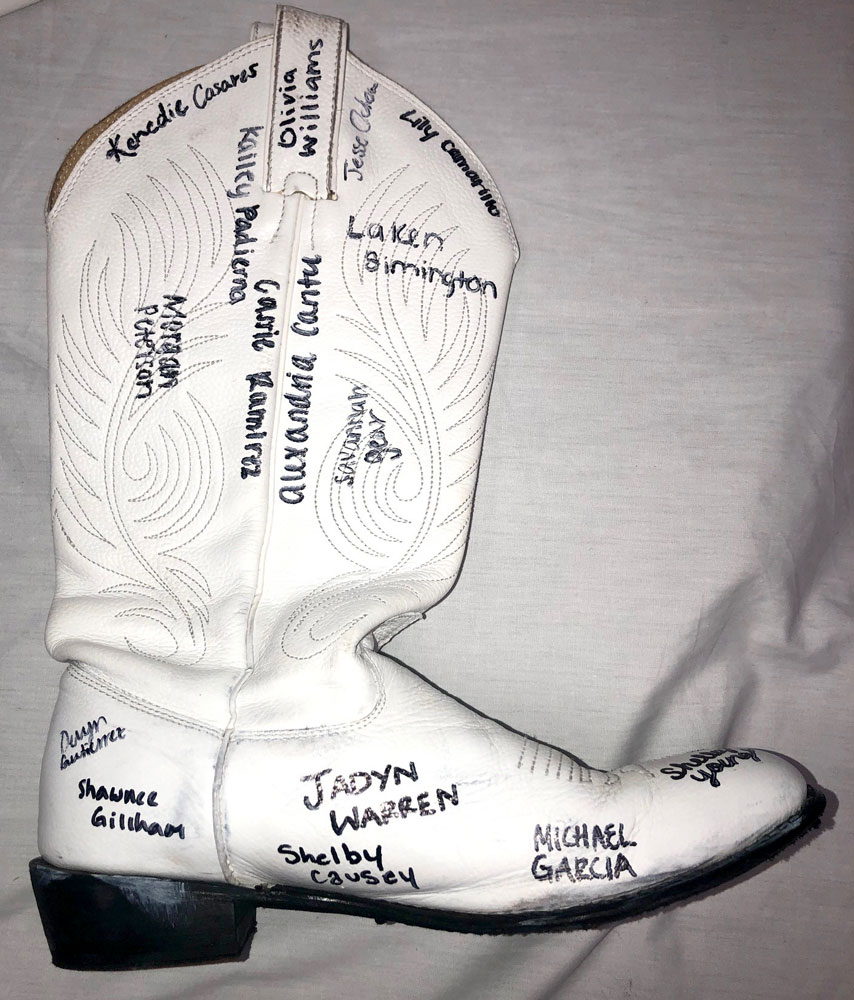 Kenedie Casares
Olivia
Williams
Jesse Ochoa
Lily Camarillo
Kailey Padierna
Laken
Simington
Morgan
Peterson
Carrie Ramirez
Alexandria Cantu
Savannah
Gear
Gutierrez
Shawnee
Gillham
JADYN
WARREN
Shelby
Causey
MICHAEL
GARCIA
Shelby
Young